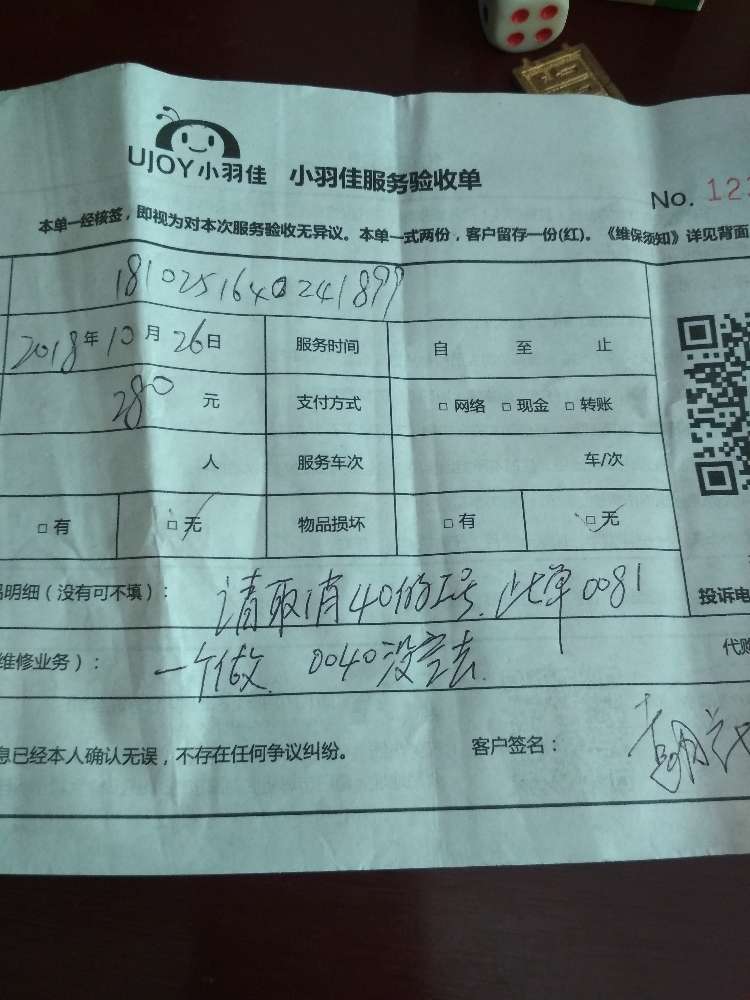 UJOY小羽佳 小羽佳服务验收单
No. 12
本单一经核签，即视为对本次服务验收无异议。本单一式两份，客户留存一份(红)。《维保须知》详见背面
1810251640241899
2018年10月26日 服务时间 自 至 止
280 元 支付方式 □网络 □现金 □转账
人 服务车次 车/次
□有 □无 物品损坏 □有 □无
明细（没有可不填）： 请取消40的工号.此单0081
投诉电
维修业务）： 一个做.0040没空去.
代购
息已经本人确认无误，不存在任何争议纠纷。 客户签名：